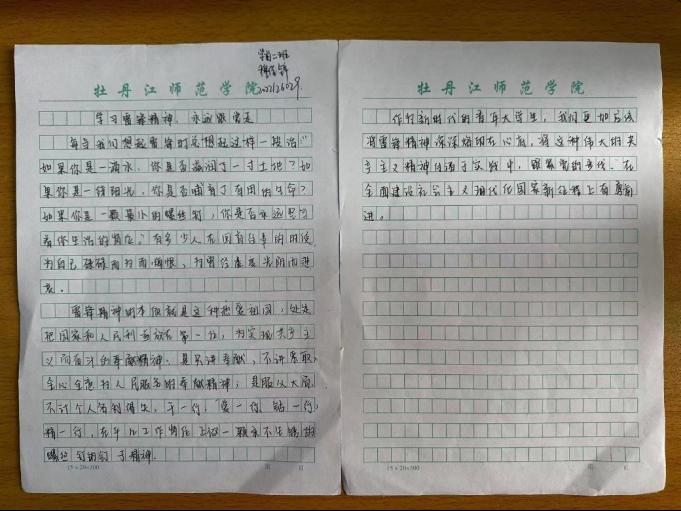 学前二班
牡丹江师范学院
学习雷锋精神 永远跟党走
每当我们想起雷锋时总想起这样一段话："
如果你是一滴水，你是否滋润了一寸土地？如
果你是一线阳光，你是否照亮了
如果你是一颗最小的螺丝钉，你是否永远坚守
着你生活的岗位？有多少人在回首往事的时候
为自己碌碌而为而悔恨，为曾经虚度光阴而
雷锋精神的本质就是这种热爱祖国，处处
把国家和人民利益放在第一位，为实现共产主
义而奋斗的奉献精神；是只讲奉献，不讲索取，
全心全意为人民服务的奉献精神；是服从大局，
不计个人名利得失，干一行，爱一行，钻一行，
精一行，在平凡工作岗位上做一颗永不生锈的
螺丝钉的钉子精神.
15×20=300
第 页
牡丹江师范学院
作为新时代的青年大学生，我们更加应该
将雷锋精神深深烙印在心底，将这种伟大的共
产主义精神 于实践中，跟紧党的步伐，在
全面建设社会主义现代化国家新征程上奋勇前
进。
15×20=300
第 页